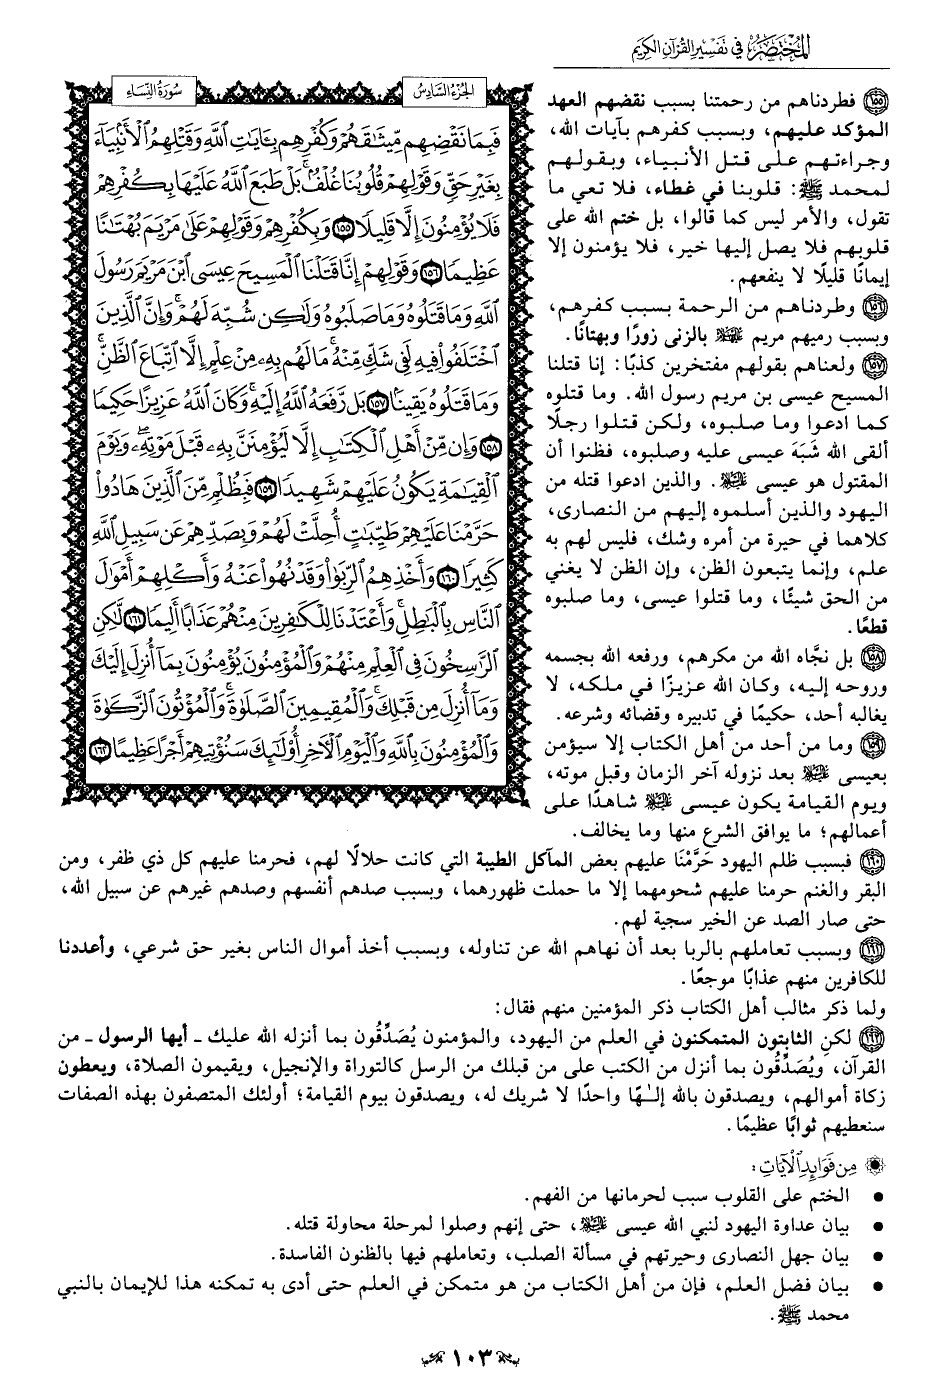 المختصر في تفسير القرآن الكريم
الجزء السادس
سورة النساء
فَبِمَا نَقْضِهِم مِّيثَٰقَهُمْ وَكُفْرِهِم بِـَٔايَٰتِ ٱللَّهِ وَقَتْلِهِمُ ٱلْأَنۢبِيَآءَ
بِغَيْرِ حَقٍّ وَقَوْلِهِمْ قُلُوبُنَا غُلْفٌۢ ۚ بَلْ طَبَعَ ٱللَّهُ عَلَيْهَا بِكُفْرِهِمْ
فَلَا يُؤْمِنُونَ إِلَّا قَلِيلًا ١٥٥ وَبِكُفْرِهِمْ وَقَوْلِهِمْ عَلَىٰ مَرْيَمَ بُهْتَٰنًا
عَظِيمًا ١٥٦ وَقَوْلِهِمْ إِنَّا قَتَلْنَا ٱلْمَسِيحَ عِيسَى ٱبْنَ مَرْيَمَ رَسُولَ
ٱللَّهِ وَمَا قَتَلُوهُ وَمَا صَلَبُوهُ وَلَٰكِن شُبِّهَ لَهُمْ ۚ وَإِنَّ ٱلَّذِينَ
ٱخْتَلَفُوا۟ فِيهِ لَفِى شَكٍّ مِّنْهُ ۚ مَا لَهُم بِهِۦ مِنْ عِلْمٍ إِلَّا ٱتِّبَاعَ ٱلظَّنِّ ۚ
وَمَا قَتَلُوهُ يَقِينًۢا ١٥٧ بَل رَّفَعَهُ ٱللَّهُ إِلَيْهِ ۚ وَكَانَ ٱللَّهُ عَزِيزًا حَكِيمًا
١٥٨ وَإِن مِّنْ أَهْلِ ٱلْكِتَٰبِ إِلَّا لَيُؤْمِنَنَّ بِهِۦ قَبْلَ مَوْتِهِۦ ۖ وَيَوْمَ
ٱلْقِيَٰمَةِ يَكُونُ عَلَيْهِمْ شَهِيدًا ١٥٩ فَبِظُلْمٍ مِّنَ ٱلَّذِينَ هَادُوا۟
حَرَّمْنَا عَلَيْهِمْ طَيِّبَٰتٍ أُحِلَّتْ لَهُمْ وَبِصَدِّهِمْ عَن سَبِيلِ ٱللَّهِ
كَثِيرًا ١٦٠ وَأَخْذِهِمُ ٱلرِّبَوٰا۟ وَقَدْ نُهُوا۟ عَنْهُ وَأَكْلِهِمْ أَمْوَٰلَ
ٱلنَّاسِ بِٱلْبَٰطِلِ ۚ وَأَعْتَدْنَا لِلْكَٰفِرِينَ مِنْهُمْ عَذَابًا أَلِيمًا ١٦١ لَّٰكِنِ
ٱلرَّٰسِخُونَ فِى ٱلْعِلْمِ مِنْهُمْ وَٱلْمُؤْمِنُونَ يُؤْمِنُونَ بِمَآ أُنزِلَ إِلَيْكَ
وَمَآ أُنزِلَ مِن قَبْلِكَ ۚ وَٱلْمُقِيمِينَ ٱلصَّلَوٰةَ ۚ وَٱلْمُؤْتُونَ ٱلزَّكَوٰةَ
وَٱلْمُؤْمِنُونَ بِٱللَّهِ وَٱلْيَوْمِ ٱلْءَاخِرِ أُو۟لَٰٓئِكَ سَنُؤْتِيهِمْ أَجْرًا عَظِيمًا ١٦٢
١٥٥ فطردناهم من رحمتنا بسبب نقضهم العهد
المؤكد عليهم، وبسبب كفرهم بآيات الله،
وجراءتهم على قتل الأنبياء، وبقولهم
لمحمد ﷺ: قلوبنا في غطاء، فلا تعي ما
تقول، والأمر ليس كما قالوا، بل ختم الله على
قلوبهم فلا يصل إليها خير، فلا يؤمنون إلا
إيمانًا قليلًا لا ينفعهم.
١٥٦ وطردناهم من الرحمة بسبب كفرهم،
وبسبب رميهم مريم عليها السلام بالزنى زورًا وبهتانًا.
١٥٧ ولعناهم بقولهم مفتخرين كذبًا: إنا قتلنا
المسيح عيسى بن مريم رسول الله. وما قتلوه
كما ادعوا وما صلبوه، ولكن قتلوا رجلًا
ألقى الله شَبَهَ عيسى عليه وصلبوه، فظنوا أن
المقتول هو عيسى عليه السلام. والذين ادعوا قتله من
اليهود والذين أسلموه إليهم من النصارى،
كلاهما في حيرة من أمره وشك، فليس لهم به
علم، وإنما يتبعون الظن، وإن الظن لا يغني
من الحق شيئًا، وما قتلوا عيسى، وما صلبوه
قطعًا.
١٥٨ بل نجَّاه الله من مكرهم، ورفعه الله بجسمه
وروحه إليه، وكان الله عزيزًا في ملكه، لا
يغالبه أحد، حكيمًا في تدبيره وقضائه وشرعه.
١٥٩ وما من أحد من أهل الكتاب إلا سيؤمن
بعيسى عليه السلام بعد نزوله آخر الزمان وقبل موته،
ويوم القيامة يكون عيسى عليه السلام شاهدًا على
أعمالهم؛ ما يوافق الشرع منها وما يخالف.
١٦٠ فبسبب ظلم اليهود حَرَّمْنَا عليهم بعض المآكل الطيبة التي كانت حلالًا لهم، فحرمنا عليهم كل ذي ظفر، ومن
البقر والغنم حرمنا عليهم شحومهما إلا ما حملت ظهورهما، وبسبب صدهم أنفسهم وصدهم غيرهم عن سبيل الله،
حتى صار الصد عن الخير سجية لهم.
١٦١ وبسبب تعاملهم بالربا بعد أن نهاهم الله عن تناوله، وبسبب أخذ أموال الناس بغير حق شرعي، وأعددنا
للكافرين منهم عذابًا موجعًا.
ولما ذكر مثالب أهل الكتاب ذكر المؤمنين منهم فقال:
١٦٢ لكنِ الثابتون المتمكنون في العلم من اليهود، والمؤمنون يُصَدِّقُون بما أنزله الله عليك ـ أيها الرسول ـ من
القرآن، ويُصَدِّقُون بما أنزل من الكتب على من قبلك من الرسل كالتوراة والإنجيل، ويقيمون الصلاة، ويعطون
زكاة أموالهم، ويصدقون بالله إلـٰهًا واحدًا لا شريك له، ويصدقون بيوم القيامة؛ أولئك المتصفون بهذه الصفات
سنعطيهم ثوابًا عظيمًا.
من فوائد الآيات:
● الختم على القلوب سبب لحرمانها من الفهم.
● بيان عداوة اليهود لنبي الله عيسى عليه السلام، حتى إنهم وصلوا لمرحلة محاولة قتله.
● بيان جهل النصارى وحيرتهم في مسألة الصلب، وتعاملهم فيها بالظنون الفاسدة.
● بيان فضل العلم، فإن من أهل الكتاب من هو متمكن في العلم حتى أدى به تمكنه هذا للإيمان بالنبي
محمد ﷺ.
١٠٣